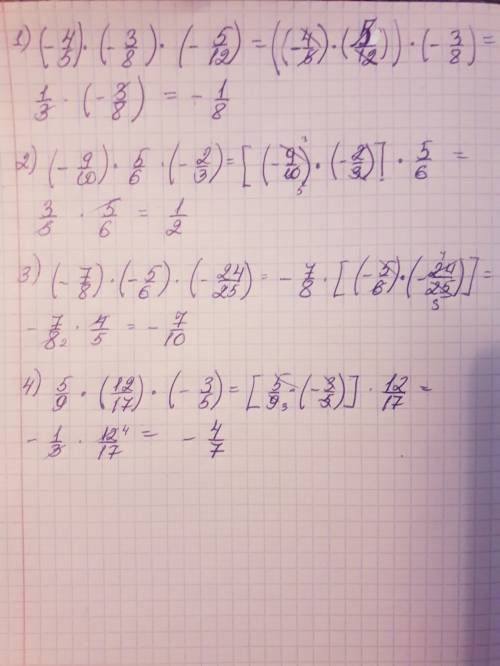 1) (-4/5)·(-3/8)·(-5/12)=((-4/5)·(5/12))·(-3/8)=
1/3·(-3/8) = -1/8
2) (-9/10)·5/6·(-2/3)=[(-9/10)·(-2/3)]·5/6 =
3/5·5/6 = 1/2
3) (-7/8)·(-5/6)·(-24/25)= -7/8·[(-5/6)·(-24/25)]=
-7/8·4/5 = -7/10
4) 5/9·(12/17)·(-3/5)=[5/9·(-3/5)]·12/17 =
-1/3·12/17 = -4/7